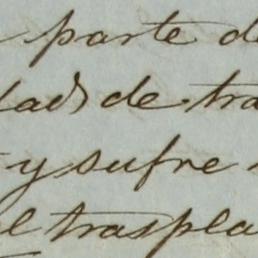 parte de
dad de tra
y sufre
el traspla